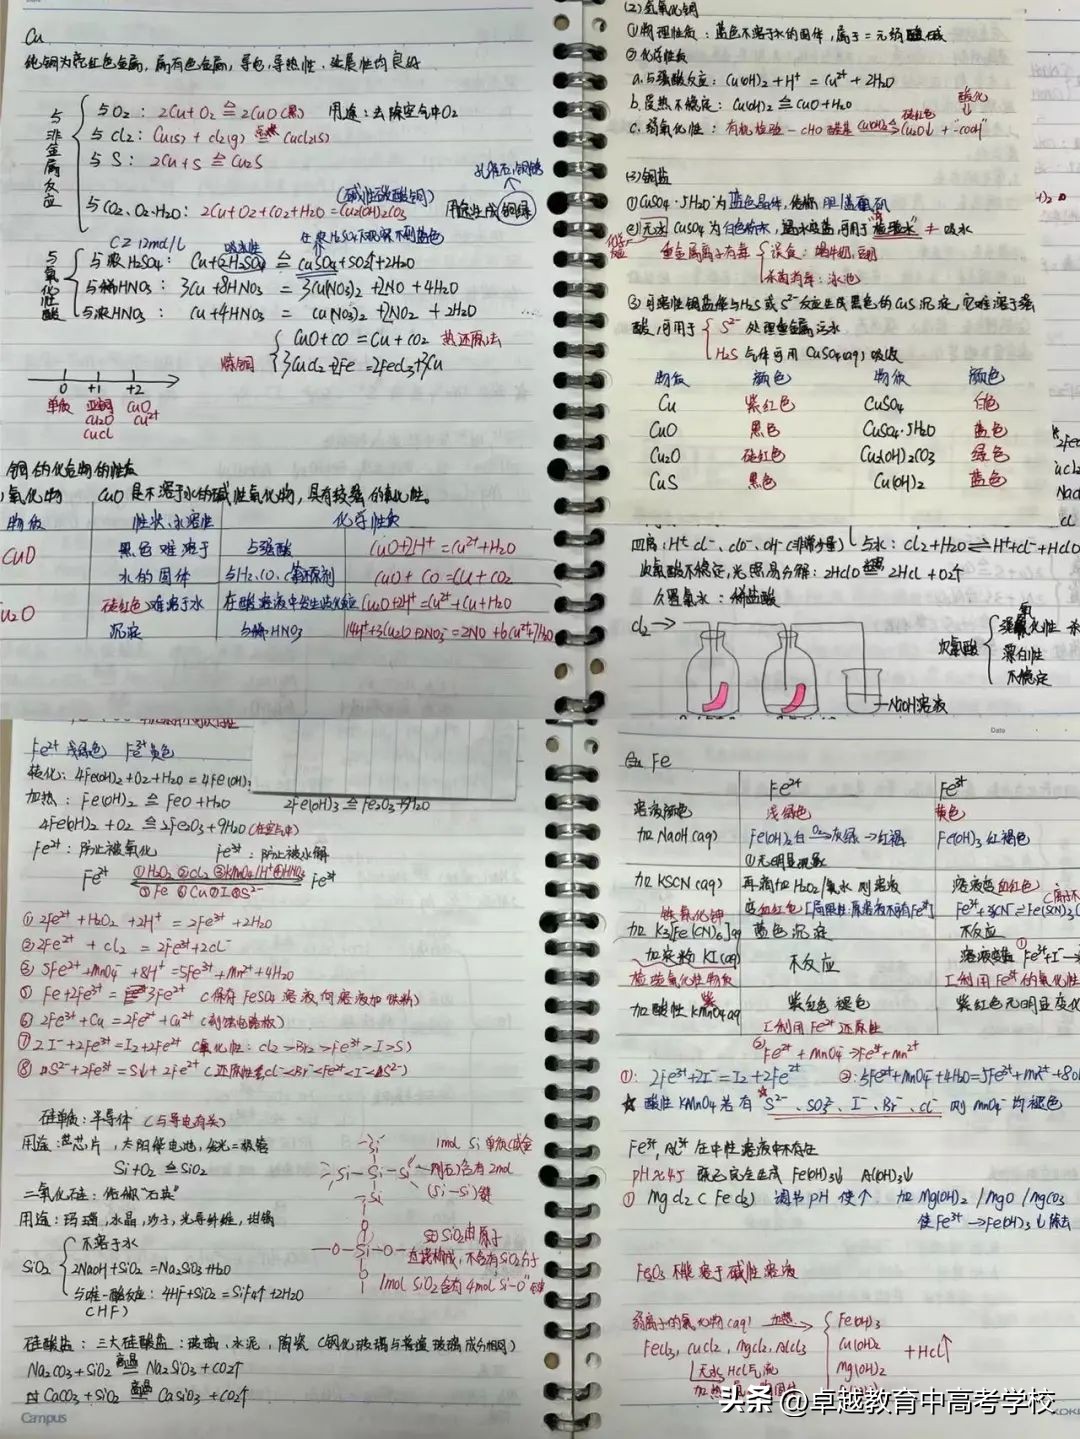 Cu
纯铜为亮红色金属，属有色金属，导电、导热性、延展性均良好
与非金属反应
与O2：2Cu+O2≙2CuO(黑) 用途：去除空气中O2
与Cl2：Cu(s)+Cl2(g) 点燃 CuCl2(s)
与S：2Cu+S≙Cu2S
(碱性碳酸铜)
与CO2、O2、H2O：2Cu+O2+CO2+H2O=Cu2(OH)2CO3
C≥12mol/L
与氧化性酸
与浓H2SO4：Cu+2H2SO4≙CuSO4+SO2↑+2H2O
与稀HNO3：3Cu+8HNO3=3Cu(NO3)2+2NO+4H2O
与浓HNO3：Cu+4HNO3=Cu(NO3)2+2NO2+2H2O
炼铜
CuO+CO=Cu+CO2 热还原法
3CuCl2+2Fe=2FeCl3+3Cu
0 +1 +2
单质 亚铜 CuO
Cu2O Cu²⁺
CuCl
铜的化合物的性质
氧化物 CuO是不溶于水的碱性氧化物，具有较强的氧化性。
物质 性状、水溶性 化学性质
CuO 黑色难溶于 与强酸 CuO+2H⁺=Cu²⁺+H2O
水的固体 与H2、CO、C等还原剂 CuO+CO=Cu+CO2
Cu2O 砖红色难溶于水 在酸溶液中发生歧化反应 Cu2O+2H⁺=Cu²⁺+Cu+H2O
沉淀 与稀HNO3 14H⁺+3Cu2O+2NO3⁻=2NO+6Cu²⁺+7H2O
(2)氢氧化铜
①物理性质：蓝色不溶于水的固体，属于二元弱碱
②化学性质
a.与强酸反应：Cu(OH)2+H⁺=Cu²⁺+2H2O
b.受热不稳定：Cu(OH)2≙CuO+H2O
砖红色 酸化
c.弱氧化性：有机检验-CHO醛基 Cu(OH)2→Cu2O↓+"-COOH"
(3)铜盐
①CuSO4·5H2O为蓝色晶体，俗称胆/蓝矾
②无水CuSO4为白色粉末，遇水变蓝，可用于"检验水"+吸水
重金属离子有毒
误食：喝牛奶、豆浆
杀菌消毒：泳池
③可溶性铜盐能与H2S或S²⁻反应生成黑色的CuS沉淀，它难溶于强
酸，可用于
S²⁻处理重金属污水
H2S气体可用CuSO4(aq)吸收
物质 颜色 物质 颜色
Cu 紫红色 CuSO4 白色
CuO 黑色 CuSO4·5H2O 蓝色
Cu2O 砖红色 Cu2(OH)2CO3 绿色
CuS 黑色 Cu(OH)2 蓝色
四离：H⁺Cl⁻、ClO⁻、OH⁻(非常少量) 与水：Cl2+H2O⇌H⁺+Cl⁻+HClO
次氯酸不稳定，光照易分解：2HClO 光照 2HCl+O2↑
久置氯水：稀盐酸
Cl2→
次氯酸
强氧化性
漂白性
不稳定
NaOH溶液
Fe²⁺浅绿色 Fe³⁺黄色
转化：4Fe(OH)2+O2+H2O=4Fe(OH)3
加热：Fe(OH)2≙FeO+H2O 2Fe(OH)3≙Fe2O3+9H2O
4Fe(OH)2+O2≙2Fe2O3+9H2O(在空气中)
Fe²⁺：防止被氧化 Fe³⁺：防止被水解
Fe²⁺ ①H2O2②Cl2③KMnO4/H⁺④HNO3 Fe³⁺
⑤Fe⑥Cu⑦I⁻⑧S²⁻
①2Fe²⁺+H2O2+2H⁺=2Fe³⁺+2H2O
②2Fe²⁺+Cl2=2Fe³⁺+2Cl⁻
③5Fe²⁺+MnO4⁻+8H⁺=5Fe³⁺+Mn²⁺+4H2O
⑤Fe+2Fe³⁺=3Fe²⁺(保存FeSO4溶液，向溶液加铁粉)
⑥2Fe³⁺+Cu=2Fe²⁺+Cu²⁺(刻蚀电路板)
⑦2I⁻+2Fe³⁺=I2+2Fe²⁺(氧化性：Cl2>Br2>Fe³⁺>I>S)
⑧S²⁻+2Fe³⁺=S↓+2Fe²⁺(还原性：Cl⁻<Br⁻<Fe²⁺<I⁻<S²⁻)
硅单质：半导体(与导电有关)
用途：芯片，太阳能电池，发光二极管
Si+O2≙SiO2
1mol Si单质(或金刚石)含有2mol(Si-Si)键
二氧化硅：俗称"石英"
用途：玛瑙，水晶，沙子，光导纤维，坩埚
SiO2
不溶于水
2NaOH+SiO2=Na2SiO3+H2O
与唯一酸反应：4HF+SiO2=SiF4↑+2H2O
(HF)
SiO2由原子
直接构成，不含有SiO2分子
1mol SiO2含有4mol"Si-O"键
硅酸盐：三大硅酸盐：玻璃、水泥，陶瓷(钢化玻璃与普通玻璃成分相同)
Na2CO3+SiO2 高温 Na2SiO3+CO2↑
CaCO3+SiO2 高温 CaSiO3+CO2↑
Campus
Date
Fe
Fe²⁺ Fe³⁺
溶液颜色 浅绿色 黄色
加NaOH(aq) Fe(OH)2白 O2→灰绿→红褐 Fe(OH)3红褐色
①无明显现象
加KSCN(aq) 再滴加H2O2/氯水 则溶液 溶液变血红色
变血红色[局限性：原溶液不可有Fe³⁺]
铁氰化钾
加K3[Fe(CN)6]aq 蓝色沉淀 不反应
加淀粉KI(aq) 不反应
检验氧化性物质
加酸性KMnO4aq 紫红色褪色 紫红色无明显变化
利用Fe²⁺还原性
Fe²⁺+MnO4⁻→Fe³⁺+Mn²⁺
①：2Fe³⁺+2I⁻=I2+2Fe²⁺
☆酸性KMnO4若有S²⁻、SO3²⁻、I⁻、Br⁻、Cl⁻则MnO4⁻均褪色
Fe³⁺、Al³⁺在中性溶液中不存在
pH≈4.5 既已完全生成Fe(OH)3↓ Al(OH)3↓
①MgCl2(FeCl3) 调节pH使↑ 加Mg(OH)2/MgO/MgCO3
使Fe³⁺→Fe(OH)3↓除去
弱离子的氯化物(aq) 加热
FeCl3,CuCl2,MgCl2,AlCl3
Fe(OH)3
Cu(OH)2
Mg(OH)2
+HCl↑
无水HCl气流
头条 @卓越教育中高考学校